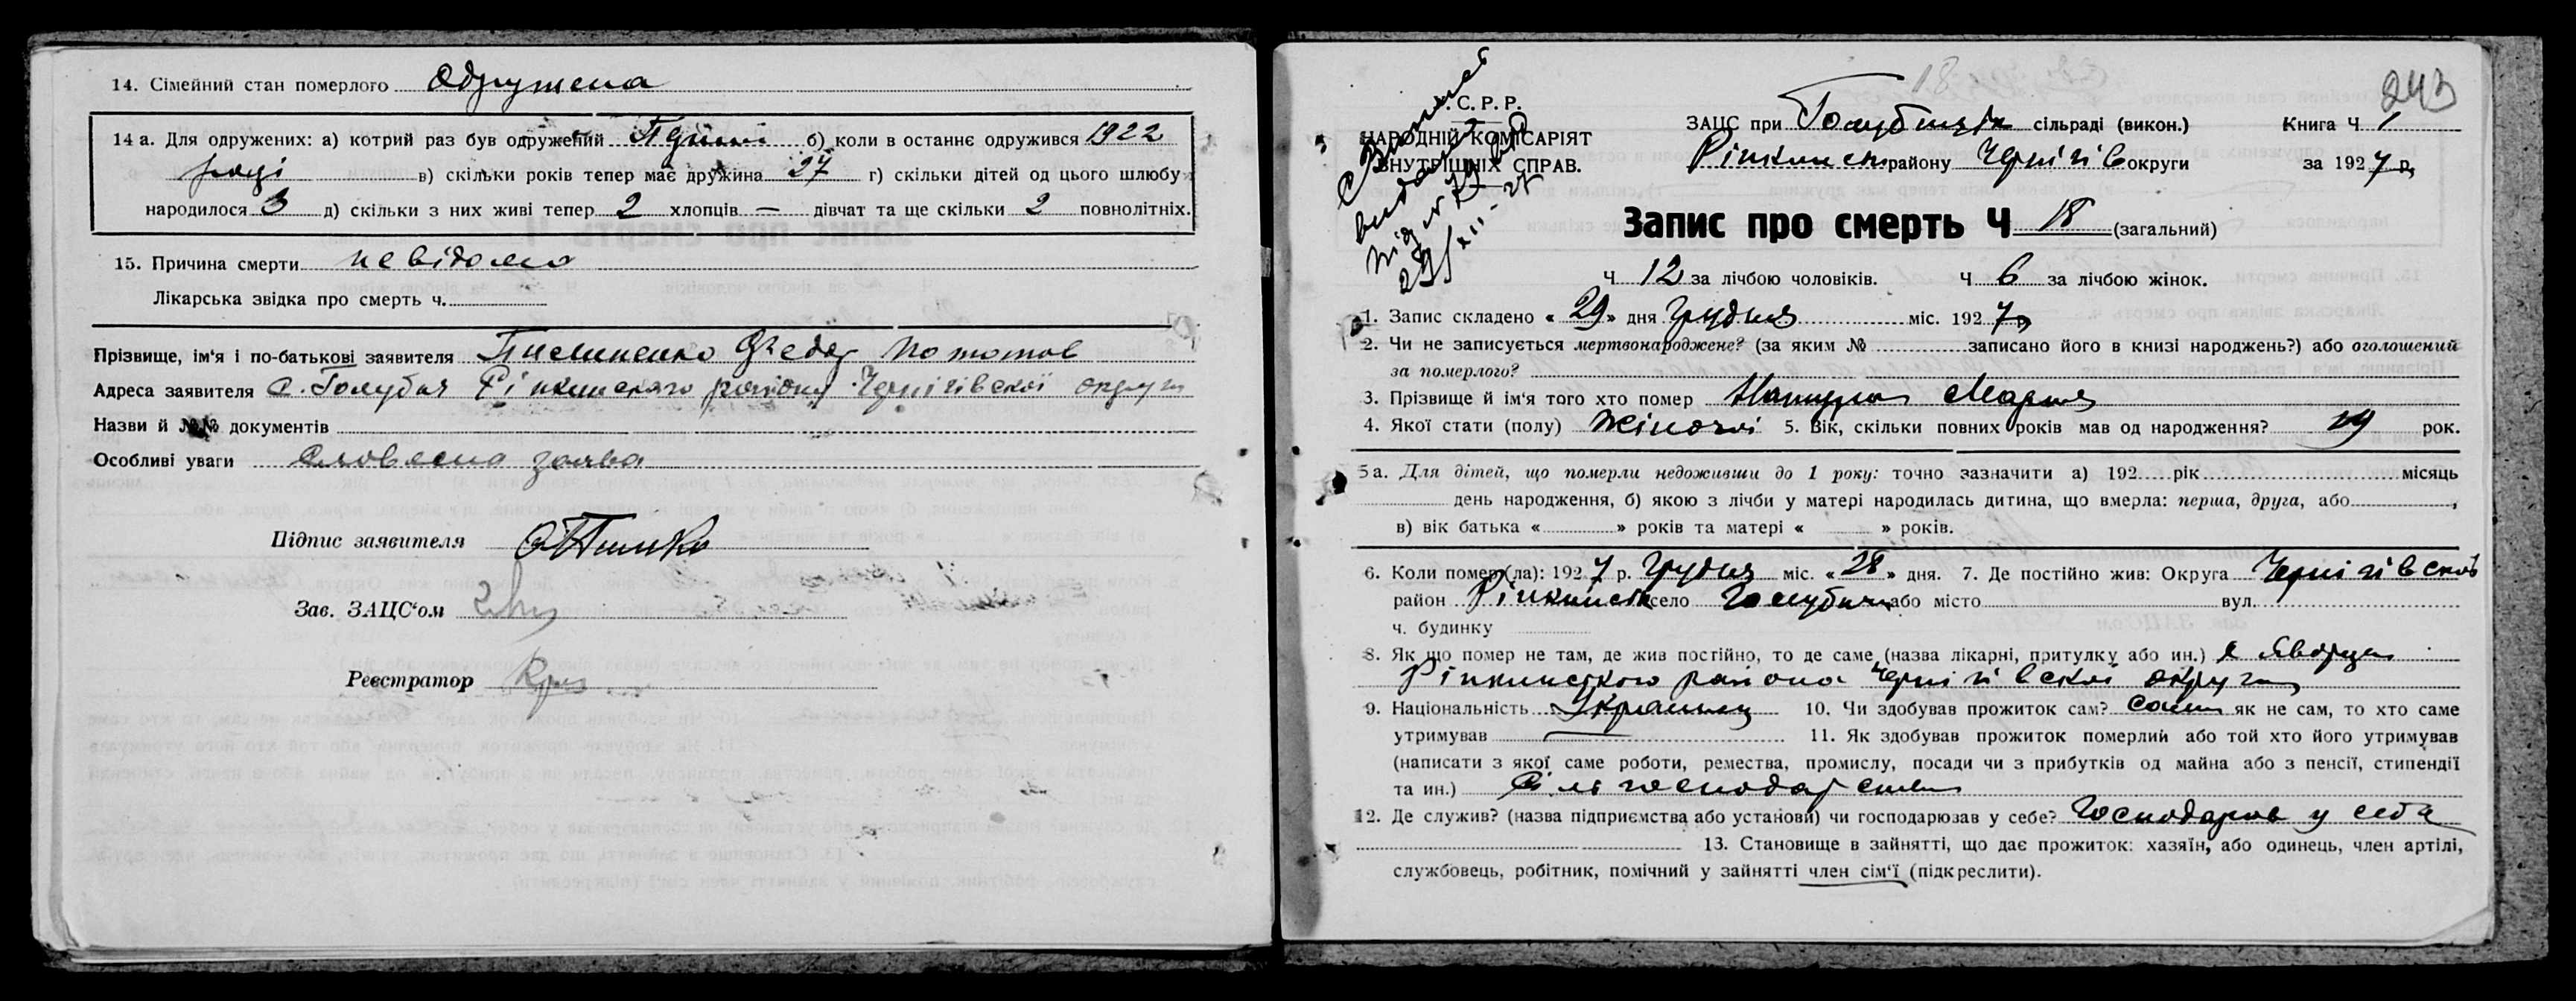 14. Сімейний стан померлого Одружена
14 а. Для одружених: а) котрий раз був одружений б) коли в останнє одружився 1922
році в) скільки років тепер має дружина 27 г) скільки дітей од цього шлюбу
народилося 3 д) скільки з них живі тепер 2 хлопців — дівчат та ще скільки 2 повнолітніх.
15. Причина смерти невідома
Лікарська звідка про смерть ч.
Прізвище, ім'я і по-батькові заявителя Федор
Адреса заявителя С. Голубичі Ріпкинского району Чернігівської округи
Назви й №№ документів
Особливі уваги Словесна заява
Підпис заявителя
Зав. ЗАЦС'ом
Реєстратор
243
18
У. С. Р. Р.
НАРОДНІЙ КОМІСАРІЯТ
ВНУТРІШНІХ СПРАВ.
29/XII-27
ЗАЦС при Голубицькі сільраді (викон.) Книга Ч 1
Ріпкинськ району Чернігів округи за 1927 р.
Запис про смерть Ч 18 (загальний)
Ч 12 за лічбою чоловіків. Ч 6 за лічбою жінок.
1. Запис складено « 29 » дня Грудня міс. 1927 р.
2. Чи не записується мертвонароджене? (за яким № записано його в книзі народжень?) або оголошений
за померлого?
3. Прізвище й ім'я того хто помер Мария
4. Якої стати (полу) Жіночої 5. Вік, скільки повних років мав од народження? рок.
5 а. Для дітей, що померли недоживши до 1 року: точно зазначити а) 192 рік місяць
день народження, б) якою з лічби у матері народилась дитина, що вмерла: перша, друга, або ,
в) вік батька « » років та матері « » років.
6. Коли помер(ла): 1927 р. Грудня міс. « 28 » дня. 7. Де постійно жив: Округа Чернігівской
район Ріпкинськ село Голубичі або місто вул.
ч. будинку
8. Як що помер не там, де жив постійно, то де саме (назва лікарні, притулку або ин.)
Ріпкинського района Чернігівської округи
9. Національність Українец 10. Чи здобував прожиток сам? Сам як не сам, то хто саме
утримував 11. Як здобував прожиток померлий або той хто його утримував
(написати з якої саме роботи, ремества, промислу, посади чи з прибутків од майна або з пенсії, стипендії
та ин.)
12. Де служив? (назва підприємства або установи) чи господарюзав у себе? Господарюв у себе
13. Становище в зайнятті, що дає прожиток: хазяїн, або одинець, член артілі,
службовець, робітник, помічний у зайнятті член сім'ї (підкреслити).